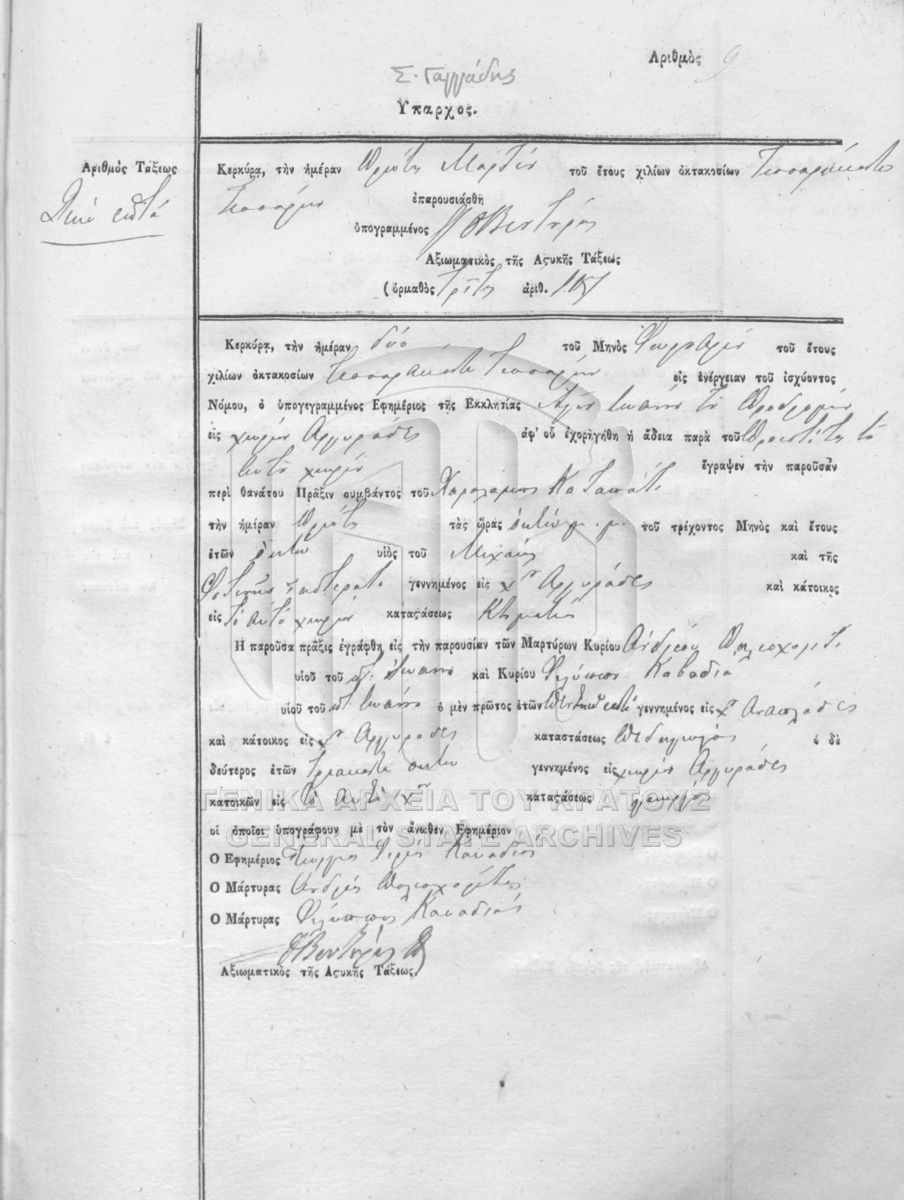 Αριθμὸς 9
Σ. Γαγγάδης
Ὕπαρχος.
Αριθμὸς Τάξεως
Δέκα επτά
Κερκύρᾳ, τὴν ἡμέραν πρώτη Μαρτίου τοῦ ἔτους χιλίων ὀκτακοσίων Τεσσαράκοντα
Τεσσάρων ἐπαρουσιάσθη
ὑπογραμμένος Βεντούρας
Αξιωματικὸς τῆς Αςυκῆς Τάξεως
(ὁρμαθὸς Τρίτη ἀριθ.
Κερκύρᾳ, τὴν ἡμέραν δύο τοῦ Μηνὸς Φευραρίου τοῦ ἔτους
χιλίων ὀκτακοσίων Τεσσαράκοντα Τεσσάρων εἰς ἐνέργειαν τοῦ ἰσχύοντος
Νόμου, ὁ ὑπογεγραμμένος Εφημέριος τῆς Εκκλησίας Αγίου Ιωάννου τοῦ Προδρόμου
εἰς χωρίον Αργυράδες ἀφ' οὗ ἐχορηγήθη ἡ ἄδεια παρὰ τοῦ Προεστότη τοῦ
αυτοῦ χωρίου ἔγραψεν τὴν παροῦσαν
περὶ θανάτου Πρᾶξιν συμβάντος τοῦ Χαραλάμπους Κοταπάτι
τὴν ἡμέραν πρώτη τὰς ὥρας οκτώ π. μ. τοῦ τρέχοντος Μηνὸς καὶ ἔτους
ἐτῶν οκτώ υἱὸς τοῦ Μιχαήλ καὶ τῆς
Φωτεινῆς γεννημένος εἰς χον Αργυράδες καὶ κάτοικος
εἰς τὸ αυτὸ χωρίον καταςάσεως Κτηματίας
Η παροῦσα πρᾶξις ἐγράφθη εἰς τὴν παρουσίαν τῶν Μαρτύρων Κυρίου Ανδρέου Παλιοχωρίτι
υἱοῦ τοῦ ποτ. Ιωάννου καὶ Κυρίου Φιλίππου Καβαδία
υἱοῦ τοῦ ποτ. Ιωάννου ὁ μὲν πρῶτος ἐτῶν πεντήκοντα γεννημένος εἰς χον Αναπλάδες
καὶ κάτοικος εἰς χον Αργυράδες καταστάσεως ὁ δὲ
δεύτερος ἐτῶν τριάκοντα οκτώ γεννημένος εἰς χωρίον Αργυράδες
κατοικῶν εἰς τὸ αυτὸ χον καταςάσεως γεωργός
οἱ ὁποῖοι ὑπογράφουν μὲ τὸν ἄνωθεν Εφημέριον
Ο Εφημέριος Γεώργιος Καβαδίας
Ο Μάρτυρας Ανδρέας Παλιοχωρίτης
Ο Μάρτυρας Φιλίππος Καβαδίας
Βεντούρας
Αξιωματικὸς τῆς Αςυκῆς Τάξεως.
ΓΕΝΙΚΑ ΑΡΧΕΙΑ ΤΟΥ ΚΡΑΤΟΥΣ
GENERAL STATE ARCHIVES